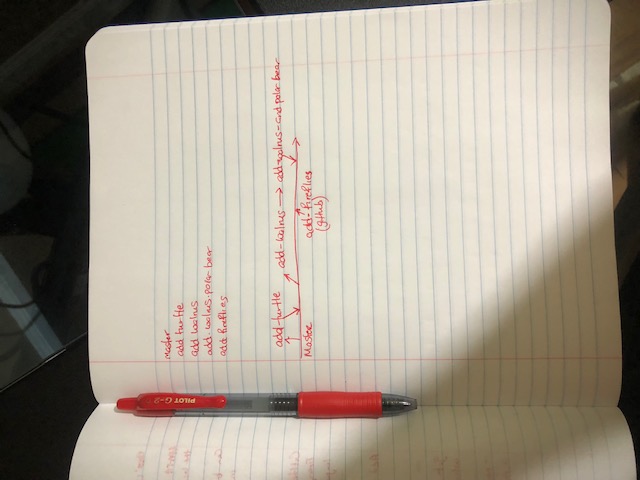 PILOT G-2
Master
add turtle
add walrus
add-walrus-polar bear
add fireflies
add-turtle
add-walrus → add-walrus-and polar bear
Master
add-fireflies
(gthub)